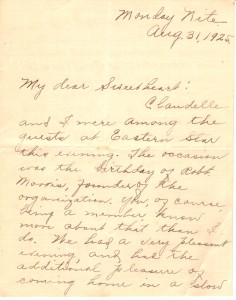 Monday Nite
Aug. 31, 1925
My dear Sweetheart:
Claudelle
and I were among the
guests at Eastern Star
this evening. The occasion
was the birthday of Robt
Morris, founder of the
organization. You, of course,
being a member, know
more about that than I
do. We had a very pleasant
evening and had the
additional pleasure of
coming home in a slow